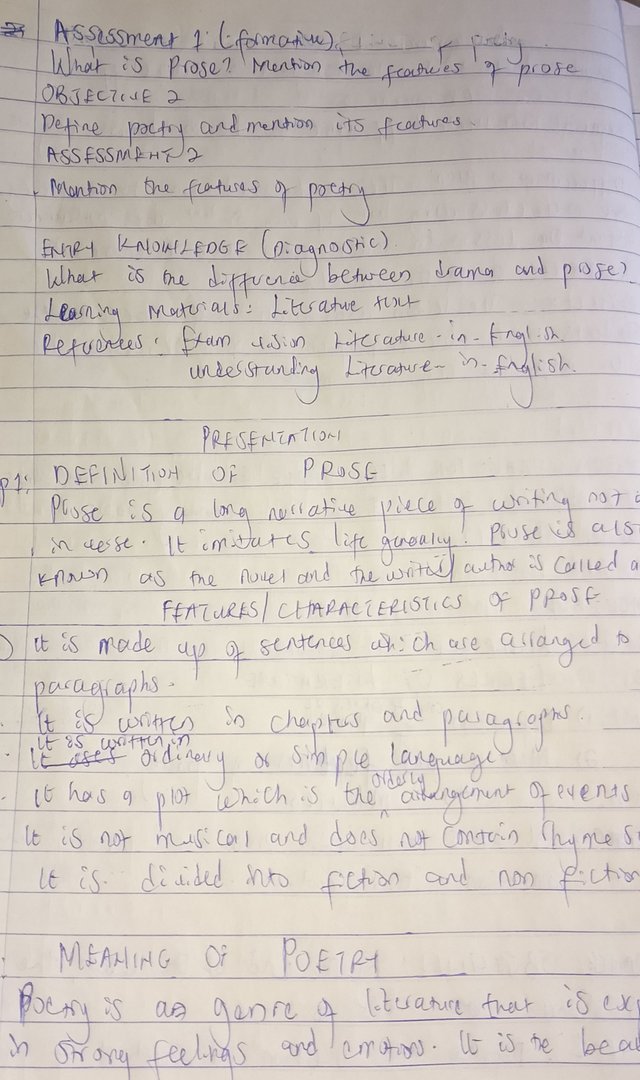 Assessment 1 (formative)
What is Prose? Mention the features of prose
OBJECTIVE 2
Define poetry and mention its features.
ASSESSMENT 2
Mention the features of poetry
ENTRY KNOWLEDGE (Diagnostic)
What is the difference between drama and prose?
Learning Materials: Literature text
References: Exam Literature-in-English.
understanding Literature-in-English.
PRESENTATION
P1: DEFINITION OF PROSE
Prose is a long narrative piece of writing not
in verse. It imitates life generally. Prose is als
known as the novel and the writer/author is called a
FEATURES/CHARACTERISTICS OF PROSE
It is made up of sentences which are arranged to
paragraphs.
It is written in chapters and paragraphs.
It is written in
It uses ordinary or simple language
It has a plot which is the orderly arrangement of events
It is not musical and does not contain rhymes
It is divided into fiction and non fiction
MEANING OF POETRY
Poetry is a genre of literature that is exp
in strong feelings and emotion. It is the beau